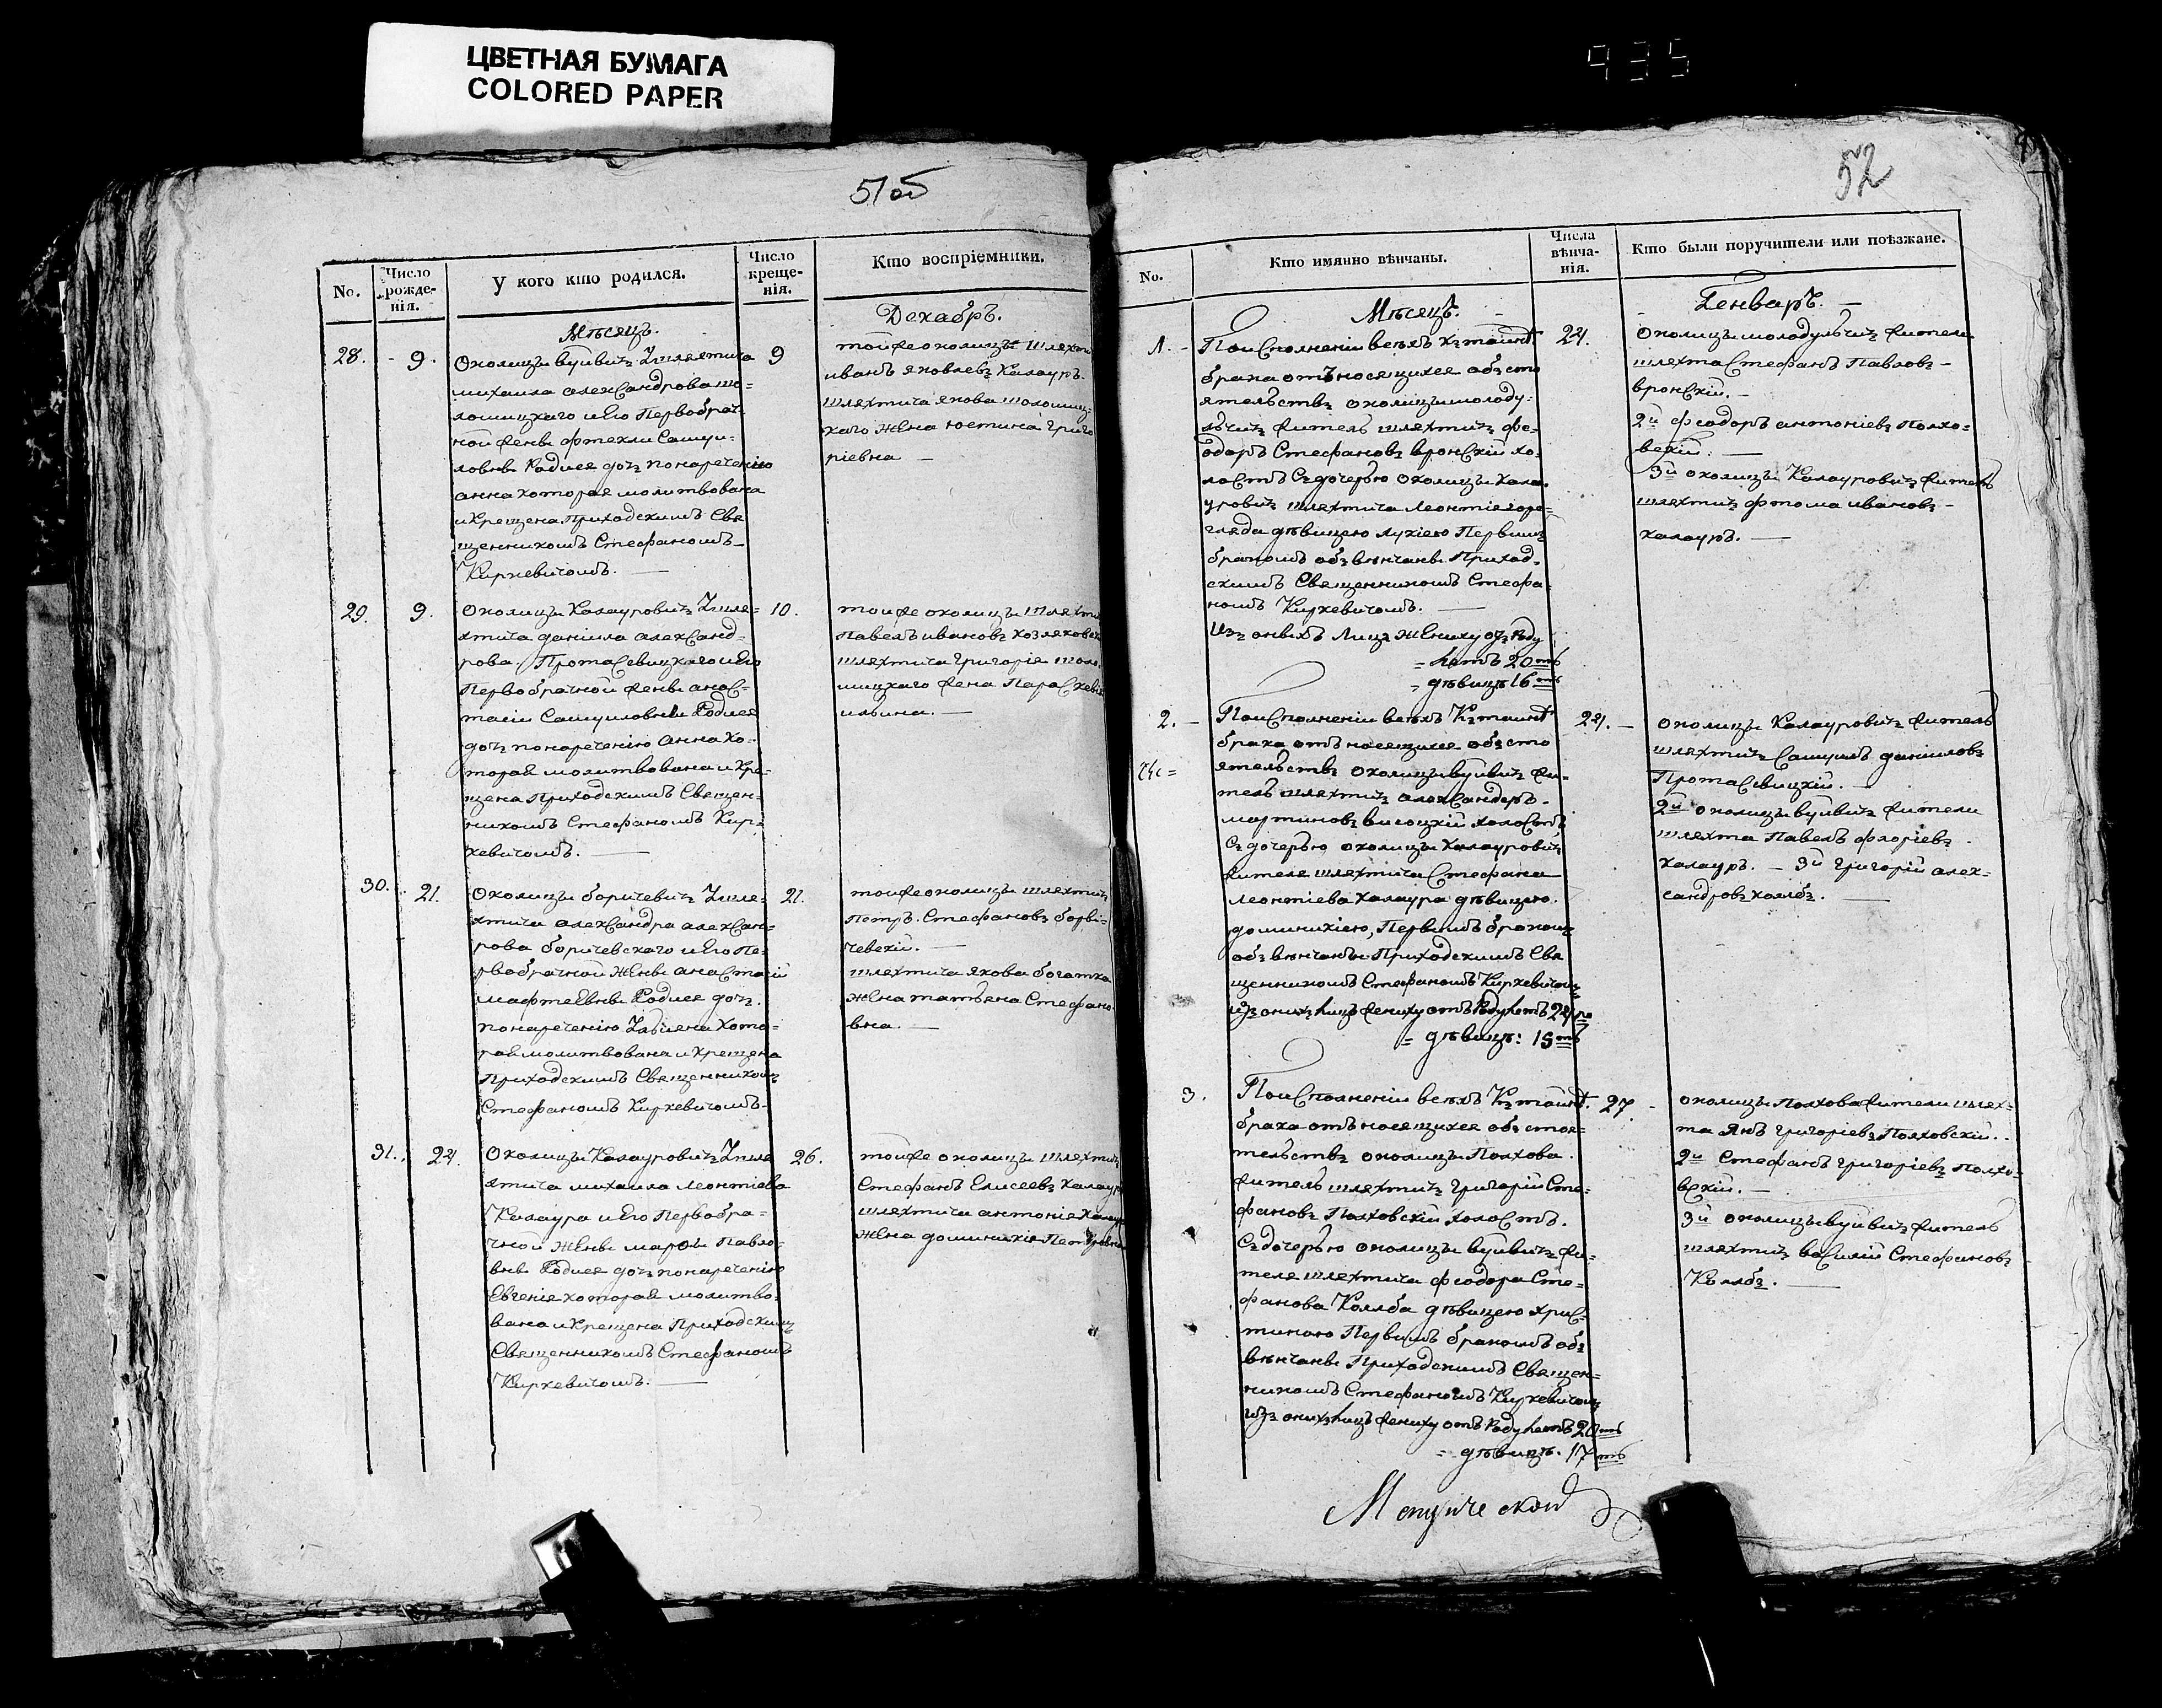 ЦВЕТНАЯ БУМАГА
COLORED PAPER
935
51об
No.
Число рожде-нія.
У кого кто родился.
Число креще-нія.
Кто воспріемники.
Мѣсяцъ.
Декабръ.
28.
9.
Околицы вуйвичъ Ушляхтича
михаила александрова шо-
ломицкаго и Его Первобрач-
ной женѣ
ловнѣ Родися дочъ понареченію
анна которая молитвована
и Крещена Приходскимъ Свя
щенникомъ Стефаномъ
Киркевичомъ.
9
тойже околицы шляхти
иванъ яковлевъ Калауръ.
шляхтича якова шоломиц-
каго жена юстина григо
ріевна
29.
9.
Околицы Калауровичъ Ушля-
хтича даніила александ-
рова Протасевицкаго и Его
Первобрачной женѣ анас-
тасіи Самуиловнѣ Родися
дочъ понареченію Анна ко-
торая молитвована и Кре-
щена Приходскимъ Священ-
никомъ Стефаномъ Кир-
кевичомъ.
10.
тойже околицы шляхти
Павелъ ивановъ
шляхтича григорія шоло
мицкаго жена Параскевія
ильина.
30.
21.
Околицы боричевичъ Ушля-
хтича александра алексан-
рова боричевскаго и Его Пе-
рвобрачной женѣ анастасіи
мафтеевнѣ Родися дочъ
понареченію Уліяна кото-
рая молитвована и крещена
Приходскимъ Священникомъ
Стефаномъ Киркевичомъ.
21.
тойже околицы шляхтичъ
Петръ Стефановъ
чевскій.
шляхтича якова богатка
жена татьяна Стефано
вна.
31.
24.
Околицы Калауровичъ Ушля
хтича михаила леонтіева
Калаура и Его Первобра-
чной женѣ марѳы Павло-
внѣ Родися дочъ понареченію
Евгенія которая молитво-
вана и крещена Приходскимъ
Священникомъ Стефаномъ
Киркевичомъ.
26.
тойже околицы шляхтичъ
Стефанъ Елисеевъ калаур
шляхтича антонія Калаур
жена доминикія Петровна
52
No.
Кто имянно вѣнчаны.
Числа вѣнча-нія.
Кто были поручители или поѣзжане.
Мѣсяцъ.
Генваръ.
1.
По исполненіи всѣхъ къ таинст.
брака отъносящихся объсто
ятельствъ околицы молоду-
льчицъ житель шляхтичъ фе-
одоръ Стефановъ вронскій хо-
лостъ Съ дочерью околицы кала
уровичъ шляхтича леонтія горе-
гляда дѣвицею лукіею Первымъ
бракомъ объвѣнчаны Приход-
скимъ Священникомъ Стефа-
номъ Киркевичомъ.
Изъ оныхъ лицъ жениху отъ Роду
лѣтъ 20ть
дѣвицѣ 16ть
24.
Околицы молодульчицъ жители
шляхта Стефанъ Павловъ
вронскій.
2й феодоръ антоніевъ Полхо-
вскій.
3й околицы Калауровичъ житель
шляхтичъ фтома ивановъ
калауръ.
2.
По исполненіи всѣхъ Къ таинст
брака отъносящихся объсто
ятельствъ околицы вуйвичъ жи-
тель шляхтичъ александеръ
мартиновъ високцій холостъ
Съ дочерью околицы калауровичъ
жителя шляхтича Стефана
леонтіева калаура дѣвицею
доминикіею, Первымъ бракомъ
объвѣнчаны Приходскимъ Свя
щенникомъ Стефаномъ Киркевичомъ
Изъ онихъ лицъ жениху отъ Роду лѣтъ 24ро
дѣвицѣ: 15ть
24.
околицы Калауровичъ житель
шляхтичъ Самуилъ даніиловъ
Протасевицкій.
2й околицы вуйвичъ жители
шляхта Павелъ флоріевъ
калауръ. 3й григорій алек-
сандровъ колбъ.
3.
По исполненіи всѣхъ Къ таинст.
брака отъносящихся объстоя-
тельствъ околицы Полхова
житель шляхтичъ григорій Сте-
фановъ Полховскій холостъ.
Съ дочерью околицы вуйвичъ жи-
теля шляхтича феодора Сте-
фанова Колба дѣвицею крис-
тиною Первымъ бракомъ объ
вѣнчаны Приходскимъ Священ-
никомъ Стефаномъ Киркевичомъ
Изъ онихъ лицъ жениху отъ Роду лѣтъ 20ть
дѣвицѣ. 17ть
27.
околицы Полхова жители шлях-
та янъ григоріевъ Полховскій.
2й Стефанъ григоріевъ Полхо-
вскій.
3й околицы вуйвичъ житель
шляхтичъ василій Стефановъ
Колбъ.